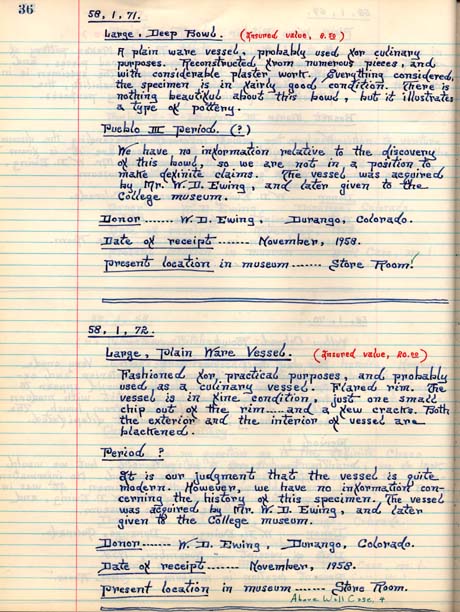 36
58, 1, 71.
Large, Deep Bowl. (Insured value, 8.50)
A plain ware vessel, probably used for culinary
purposes. Reconstructed from numerous pieces, and
with considerable plaster work. Everything considered,
the specimen is in fairly good condition. There is
nothing beautiful about this bowl, but it illustrates
a type of pottery.
Pueblo III Period. (?)
We have no information relative to the discovery
of this bowl, so we are not in a position to
make definite claims. The vessel was acquired
by Mr. W. D. Ewing, and later given to the
College museum.
Donor ....... W. D. Ewing, Durango, Colorado.
Date of receipt ....... November, 1958.
Present location in museum ....... Store Room.
58, 1, 72.
Large, Plain Ware Vessel. (Insured value, 20.00)
Fashioned for practical purposes, and probably
used, as a culinary vessel. Flared rim. The
vessel is in fine condition, just one small
chip out of the rim .... and a few cracks. Both
the exterior and the interior of vessel are
blackened.
Period ?
It is our judgment that the vessel is quite
modern. However, we have no information con-
cerning the history of this specimen. The vessel
was acquired by Mr. W. D. Ewing, and later
given to the College museum.
Donor ...... W. D. Ewing, Durango, Colorado.
Date of receipt ....... November, 1958.
Present location in museum ....... Store Room.
Above Wall Case, 4